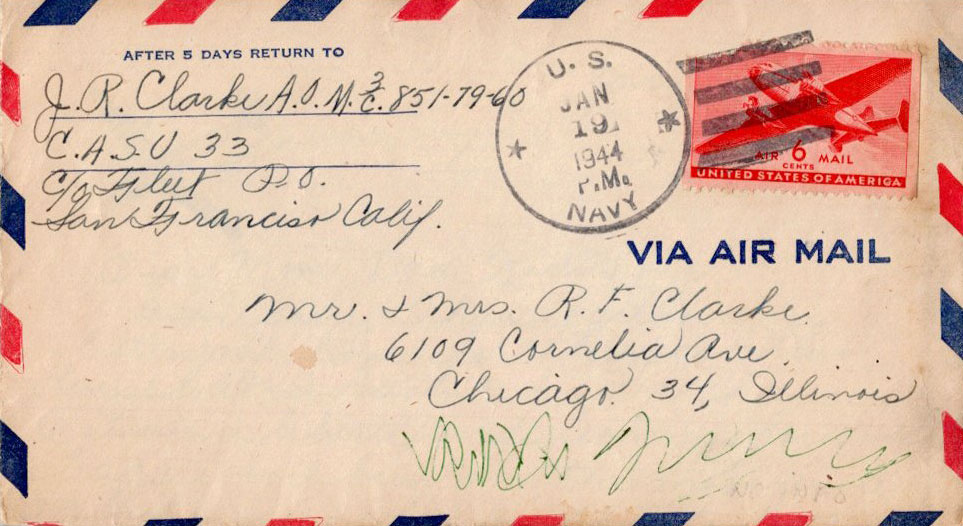 AFTER 5 DAYS RETURN TO
J. R. Clarke A.O.M. 3/c. 851-79-60
C.A.S.U 33
c/o Fleet P.O.
San Francisco Calif.
U. S.
JAN
19
1944
P.M.
NAVY
AIR 6 MAIL
CENTS
UNITED STATES OF AMERICA
VIA AIR MAIL
Mr. & Mrs. R. F. Clarke
6109 Cornelia Ave.
Chicago 34, Illinois